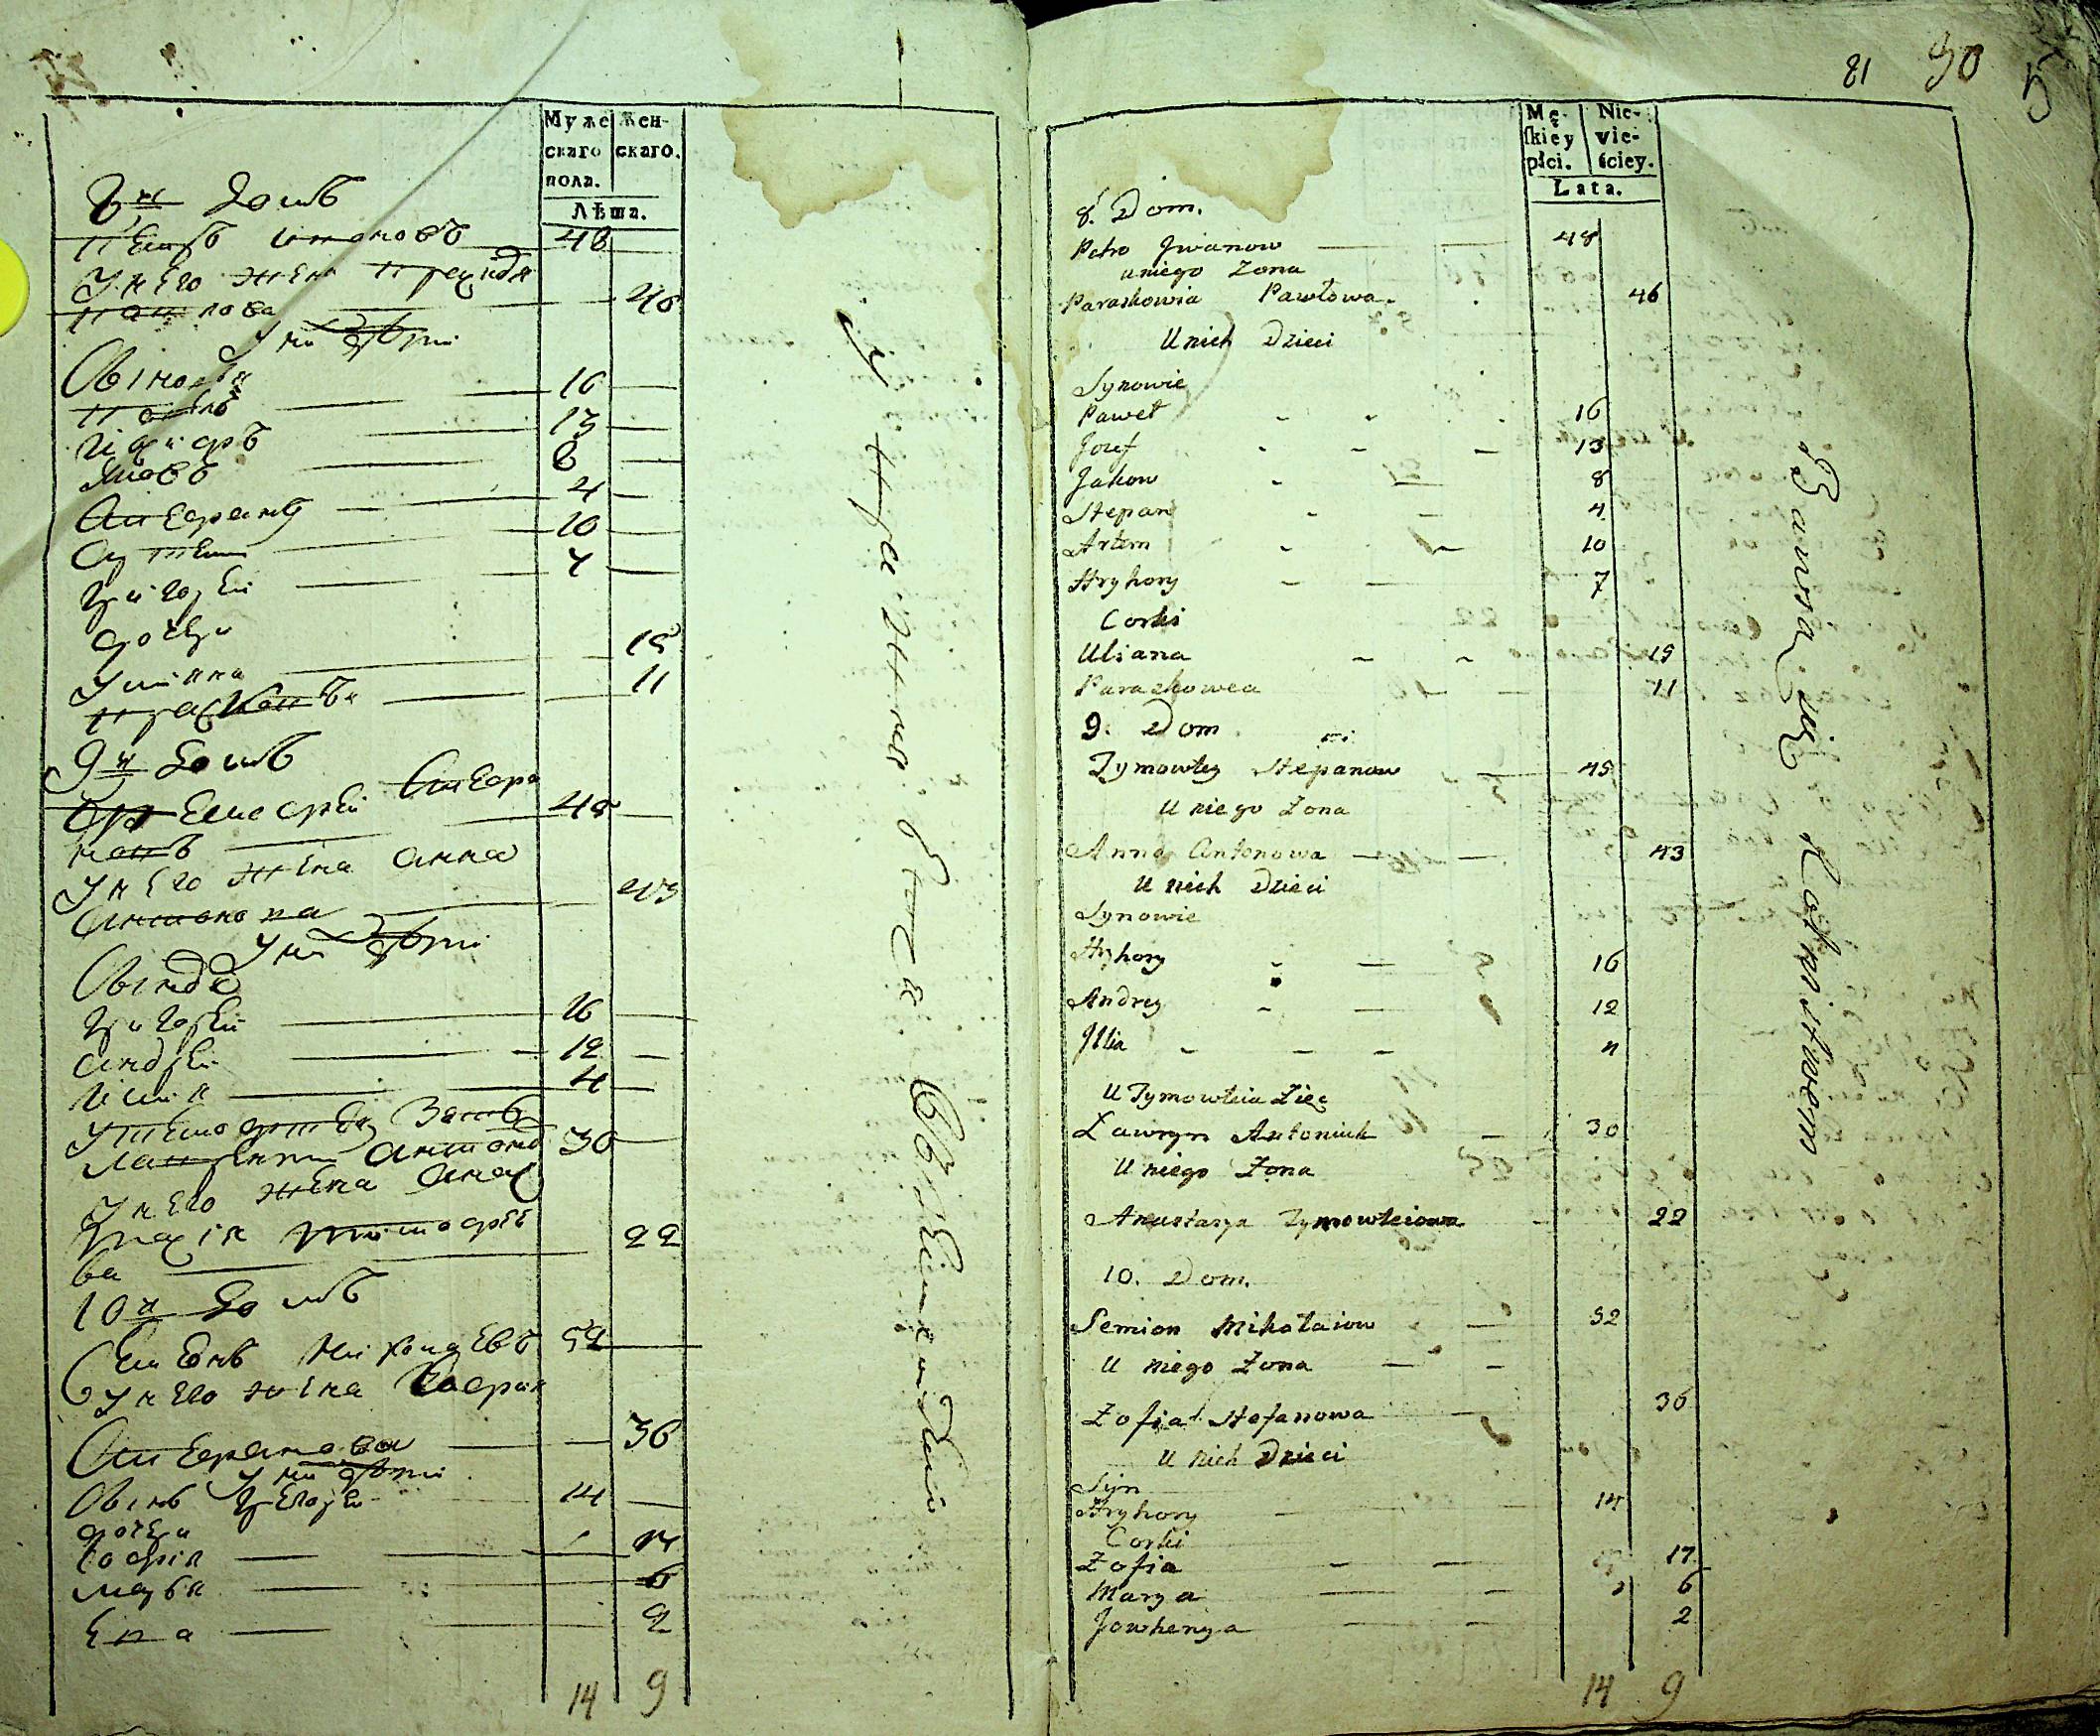 Муже
скаго
пола.
Жен-
скаго.
Лѣта.
8й домъ
Петръ Ивановъ 48
У него жена
Павлова 46
У нихъ дѣти
Сыновья
Павелъ 16
Иосифъ 13
Яковъ 8
Степанъ 4
Артемъ 10
Григорей 7
дочери
Улиана 15
Прасковья 11
9й домъ
Тимофей Степа
новъ 45
У него жена Анна
Антонова 43
У нихъ дѣти
Сыновья
Григорей 16
Андрей 12
Илия 4
У Тимофея Зять
Лаврентий Антоно 30
У него жена Анас
тасия Тимофее
ва 22
10й домъ
Семенъ Николаевъ 52
У него жена София
Степанова 36
У нихъ дѣти
Сынъ Григорей 14
дочери
София 17
Марья 6
Ева 2
14 9
81 90
5
Mę-
ſkiey
płci.
Nie-
wie-
ściey.
Lata.
8. Dom.
Petro Jwanow 48
u niego Zona
Paraskowia Pawłowa. 46
U nich Dzieci
Synowie
Paweł 16
Jozef 13
Jakow 8
Stepan 4
Artem 10
Hryhory 7
Corki
Uliana 15
Paraskowea 11
9. Dom
Tymowtey Stepanow 45
U niego Zona
Anna Antonowa 43
U nich Dzieci
Synowie
Hryhory 16
Andrey 12
Jllia 4
U Tymowteia Zięc
Ławryn Antoniuk 30
U niego Zona
Anastazya Tymowteiowa 22
10. Dom.
Semion Mikołaiow 52
U niego Zona
Zofia Stefanowa 36
U nich Dzieci
Syn
Hryhory 14
Corki
Zofia 17
Marya 6
Jowhenya 2
14 9